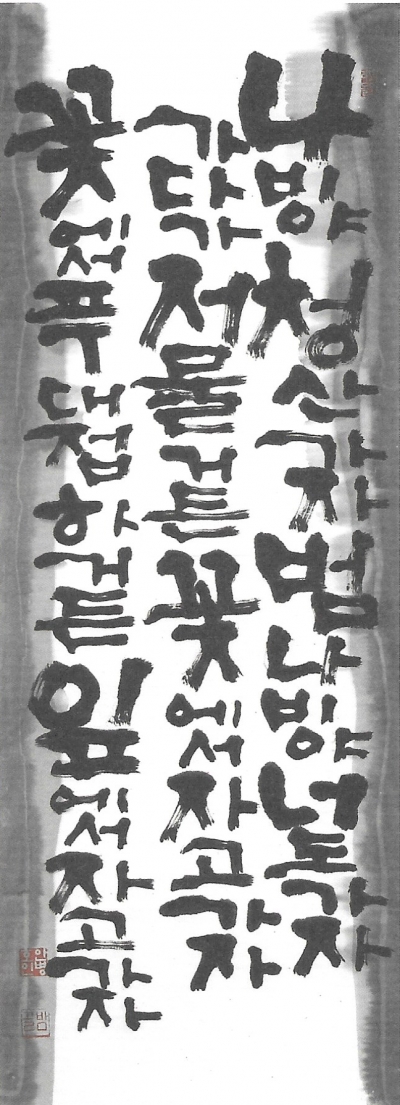 나비야 청산 가자 범나비야 너도 가자
가다가 저물거든 꽃에서 자고 가자
꽃에서 푸대접하거든 잎에서 자고 가자